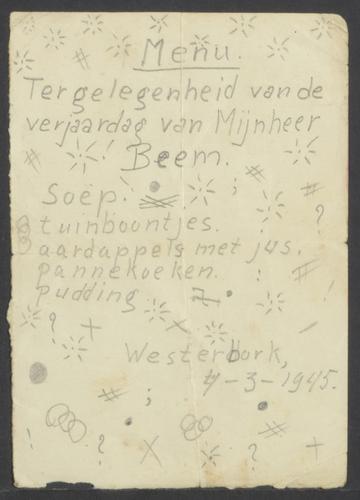 Menu.
Tergelegenheid van de
verjaardag van Mijnheer
Beem.
Soep.
tuinboontjes.
aardappels met jus.
pannekoeken.
pudding
Westerbork,
4-3-1945.